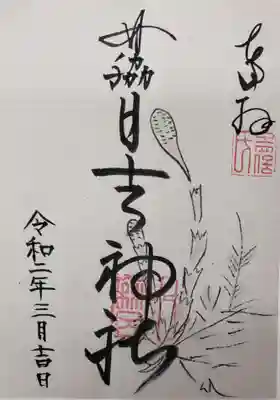 奉拝
日吉神社
令和二年三月吉日